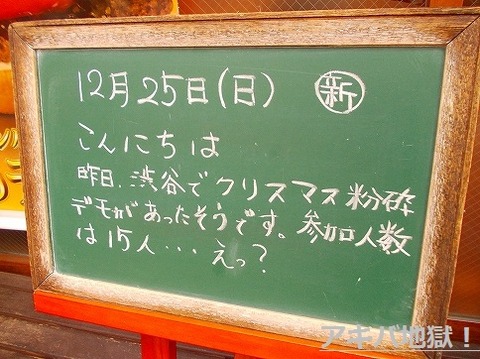 12月25日(日) ㊟新
こんにちは
昨日、渋谷でクリスマス粉砕
デモがあったそうです。参加人数
は15人・・・えっ?
アキバ地獄!